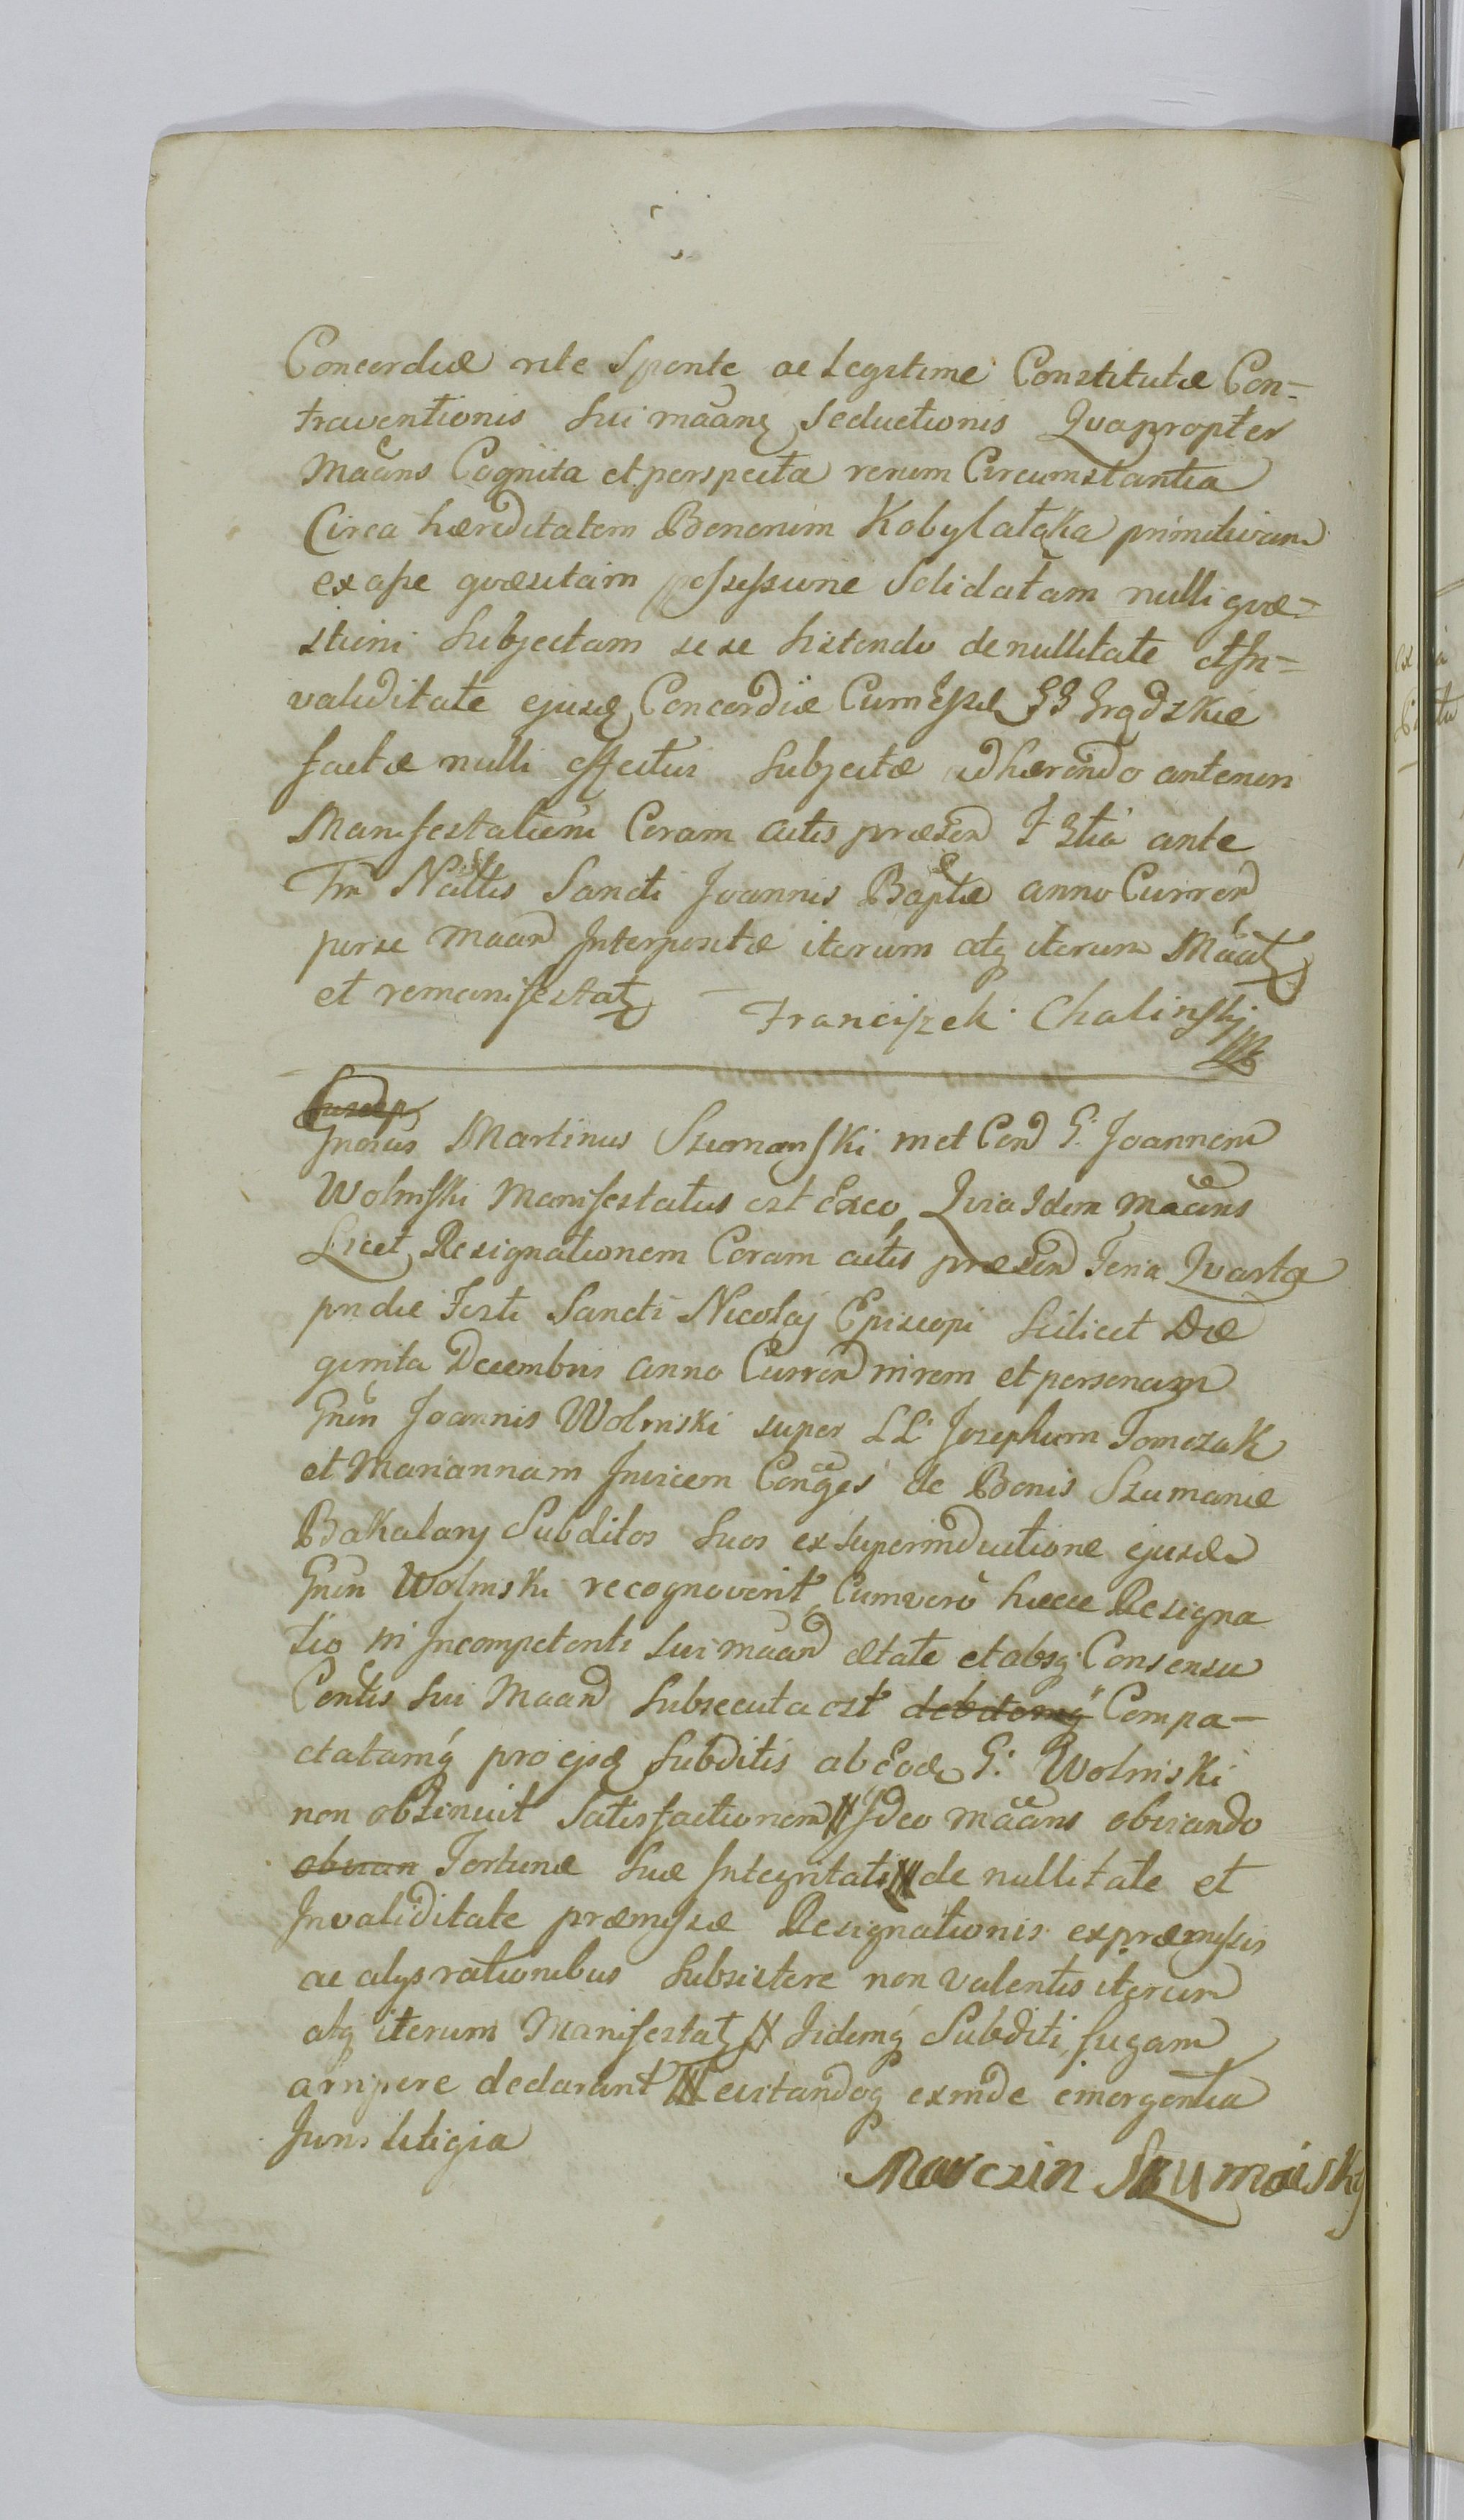 Concordiæ rite Sponte ac Legitime Constitutæ Con-
traventionis Sui mãanŧ Seductionis Qvapropter
Mãans Cognita et perspecta rerum Circumstantia
Circa hæreditatem Bonorum Kobylatąka primitivam
ex asse qvæsitam possessione Solidatam nulli qvæ-
stioni Subjectam se se Sistendo de nullitate et In-
validitate ejusd Concordiæ Cum Ipsæ GG Grądzkie
factæ nulli effectui Subjectæ adhærendo anteriori
Manifestationi Coram actis præsen F 5tia ante
Fm Nãttis Sancti Joannis Baptæ anno Curren
per se maan Interpositæ iterum atq iterum Mãat
et remanifestat Franciszek Chalinski
Gnosus Martinus Szumanski met Con G: Joannem
Wolinski Manifestatus est Exeo Qvia Idem Mãans
Licet Resignationem Coram actis præsen Feria Qvarta
pridie Festi Sancti Nicolaj Episcopi Scilicet Die
qvinta Decembris anno Curren in rem et personam
Gnen Joannis Wolinski super LL Josephum Tomczak
et Mariannam Invicem Conges de Bonis Szumanie
Bakalary Subditos Suos ex Superinductione ejusd
Gnen Wolinski recognoverit, Cumvero hæcce Resigna
tio in Incompetenti Sui maan ætate et absq Consensu
Centis Sui Maan Subsecuta est debitamq Compa-
ctatamq pro ejsd Subditis ab Eod G: Wolinski
non obtinuit Satisfactionem Ideo mãans obviando
obvian Fortunæ Suæ Integritati de nullitate et
Invaliditate præmissæ Resignationis ex præmissis
ac alys rationibus Subsistere non valentis iterum
atq iterum Manifestat Iidemq Subditi fugam
arripere declarant evitandoq exinde emergentia
Juris Litigia
Marczin Szumański